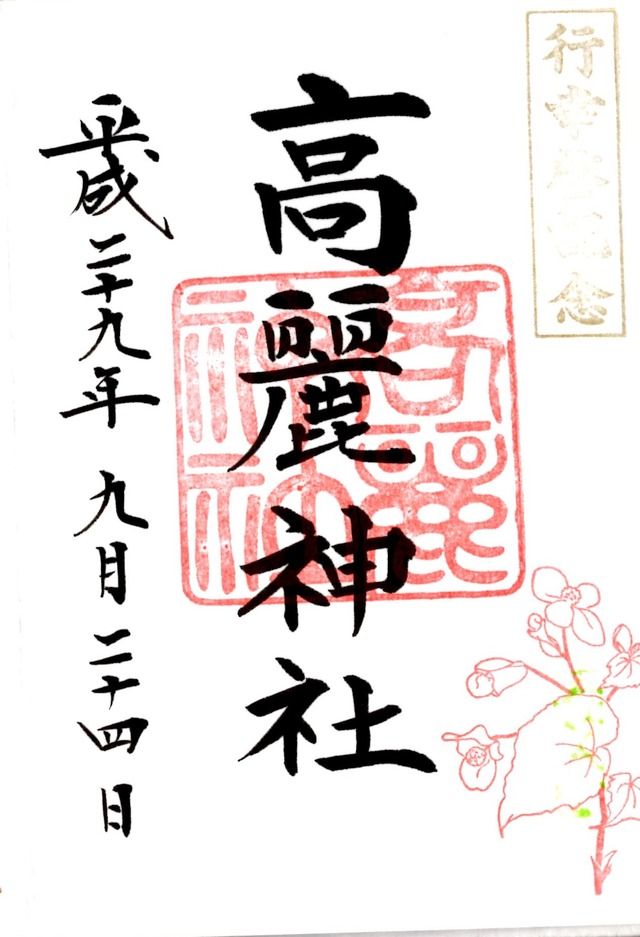 行幸啓記念
高麗神社
高麗神社
平成二十九年 九月二十四日